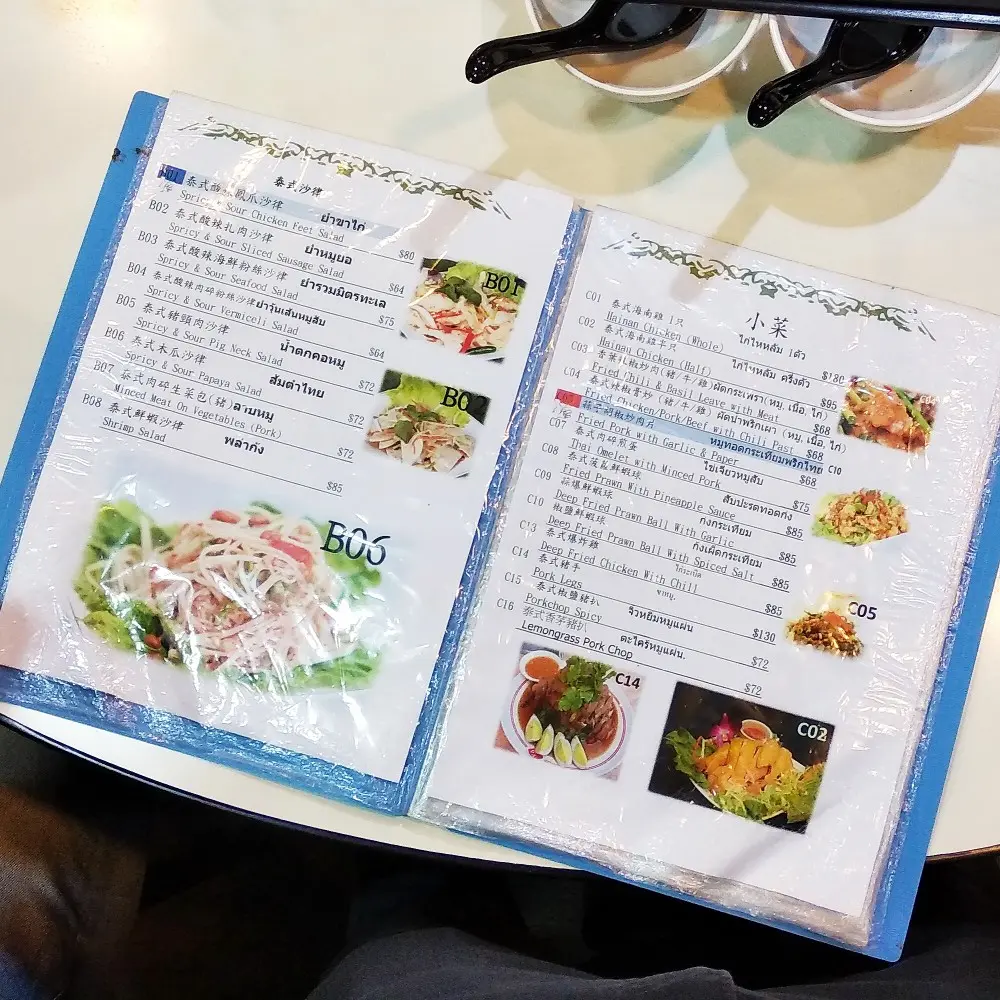 泰式沙律
B01 泰式酸辣鳳爪沙律 ยำขาไก่
Spricy & Sour Chicken Feet Salad $80
B02 泰式酸辣扎肉沙律 ยำหมูยอ
Spricy & Sour Sliced Sausage Salad $64
B03 泰式酸辣海鮮粉絲沙律 ยำรวมมิตรทะเล
Spricy & Sour Seafood Salad $75
B04 泰式酸辣肉碎粉絲沙律 ยำวุ้นเส้นหมูสับ
Spricy & Sour Vermiceli Salad $64
B05 泰式豬頸肉沙律 น้ำตกคอหมู
Spricy & Sour Pig Neck Salad $72
B06 泰式木瓜沙律 ส้มตำไทย
Spricy & Sour Papaya Salad $72
B07 泰式肉碎生菜包(豬) ลาบหมู
Minced Meat On Vegetables (Pork) $72
B08 泰式鮮蝦沙律 พล่ากุ้ง
Shrimp Salad $85
B01
B06
小菜
C01 泰式海南雞 1只 ไก่ไหหลัม 1ตัว
Hainan Chicken (Whole) $180
C02 泰式海南雞半只 ไก่ไหหลัม ครึ่งตัว
Hainau Chicken (Half) $95
C03 香葉扎椒炒肉(豬/牛/雞) ผัดกระเพรา(หมู, เนื้อ, ไก่)
Fried Chill & Basil Leave with Meat $68
C04 泰式辣椒膏炒(豬/牛/雞) ผัดน้ำพริกเผา (หมู, เนื้อ, ไก่)
Fried Chicken/Pork/Beef with Chili Past $68
C05 蒜子胡椒炒肉片 หมูทอดกระเทียมพริกไทย
Fried Pork with Garlic & Paper $68
C07 泰式肉碎煎蛋 ไข่เจียวหมูสับ
Thai Omelet with Minced Pork $75
C08 泰式菠蘿鮮蝦球 สับปะรดทอดกุ้ง
Fried Prawn With Pineapple Sauce $85
C09 蒜爆鮮蝦球 กุ้งกระเทียม
Deep Fried Prawn Ball With Garlic $85
C10 椒鹽鮮蝦球
Deep Fried Prawn Ball With Spiced Salt $85
C13 泰式爆炸雞
Deep Fried Chicken With Chill $85
C14 泰式豬手
Pork Legs $130
C15 泰式椒鹽豬扒
Porkchop Spicy $72
C16 泰式香茅豬扒 ตะไคร้หมูแผ่น.
Lemongrass Pork Chop $72
C10
C05
C14
C02